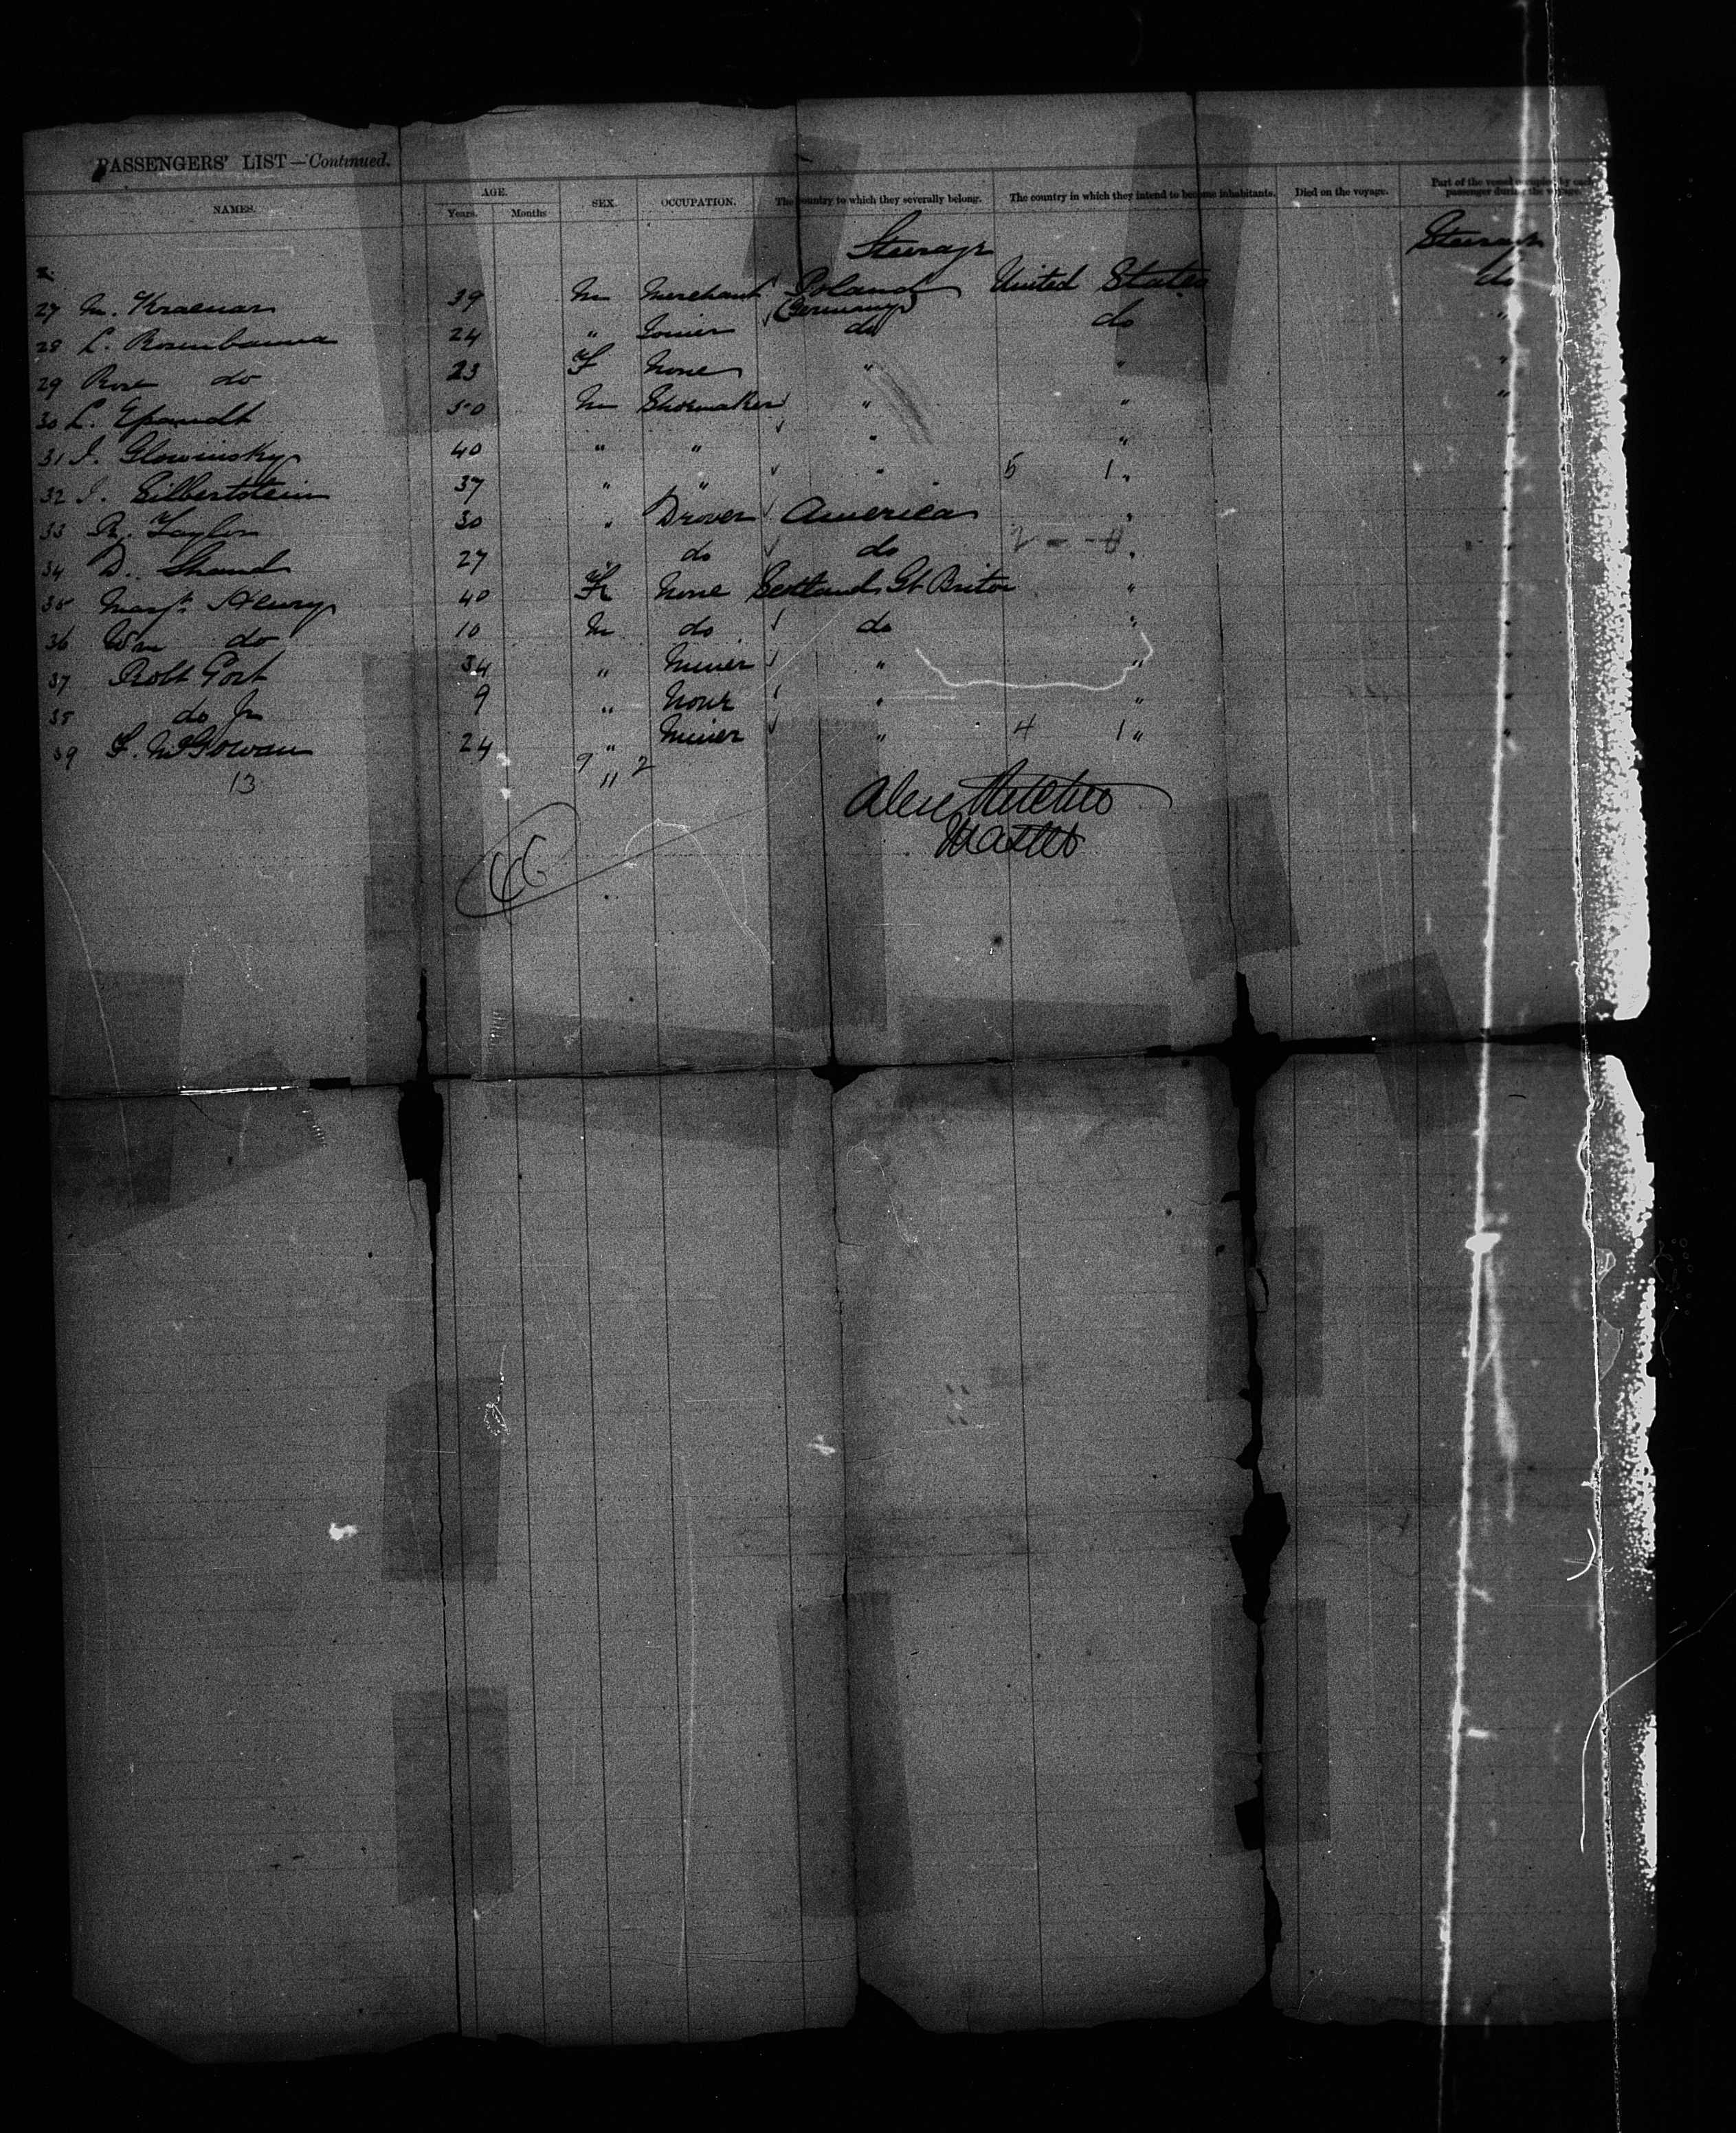 PASSENGERS' LIST—Continued.
NAMES. AGE. Years. Months SEX. OCCUPATION. The country to which they severally belong. The country in which they intend to become inhabitants. Died on the voyage. Part of the vessel occupied by each passenger during the voyage.
Steerage Steerage
27 M. Kraemar 39 M Merchant Poland (Germany) United States do
28 L. 24 " Joiner do do "
29 Rose do 23 F None " " "
30 L. 50 M Shoemaker " " "
31 I. Glowinsky 40 " " " "
32 I. Silbertstein 37 " " " 5 1 "
33 R. Taylor 30 " Drover America "
34 D. Shand 27 " do do 2 - - 0 "
35 Margt. Henry 40 F None Scotland Gt Briton "
36 Wm do 10 M do do " "
37 Robt Port 34 " Miner " " "
38 do Jr 9 " None " " "
39 F. McGowan 24 " Miner " 4 1 " "
13 9 11 2
Alex
Master